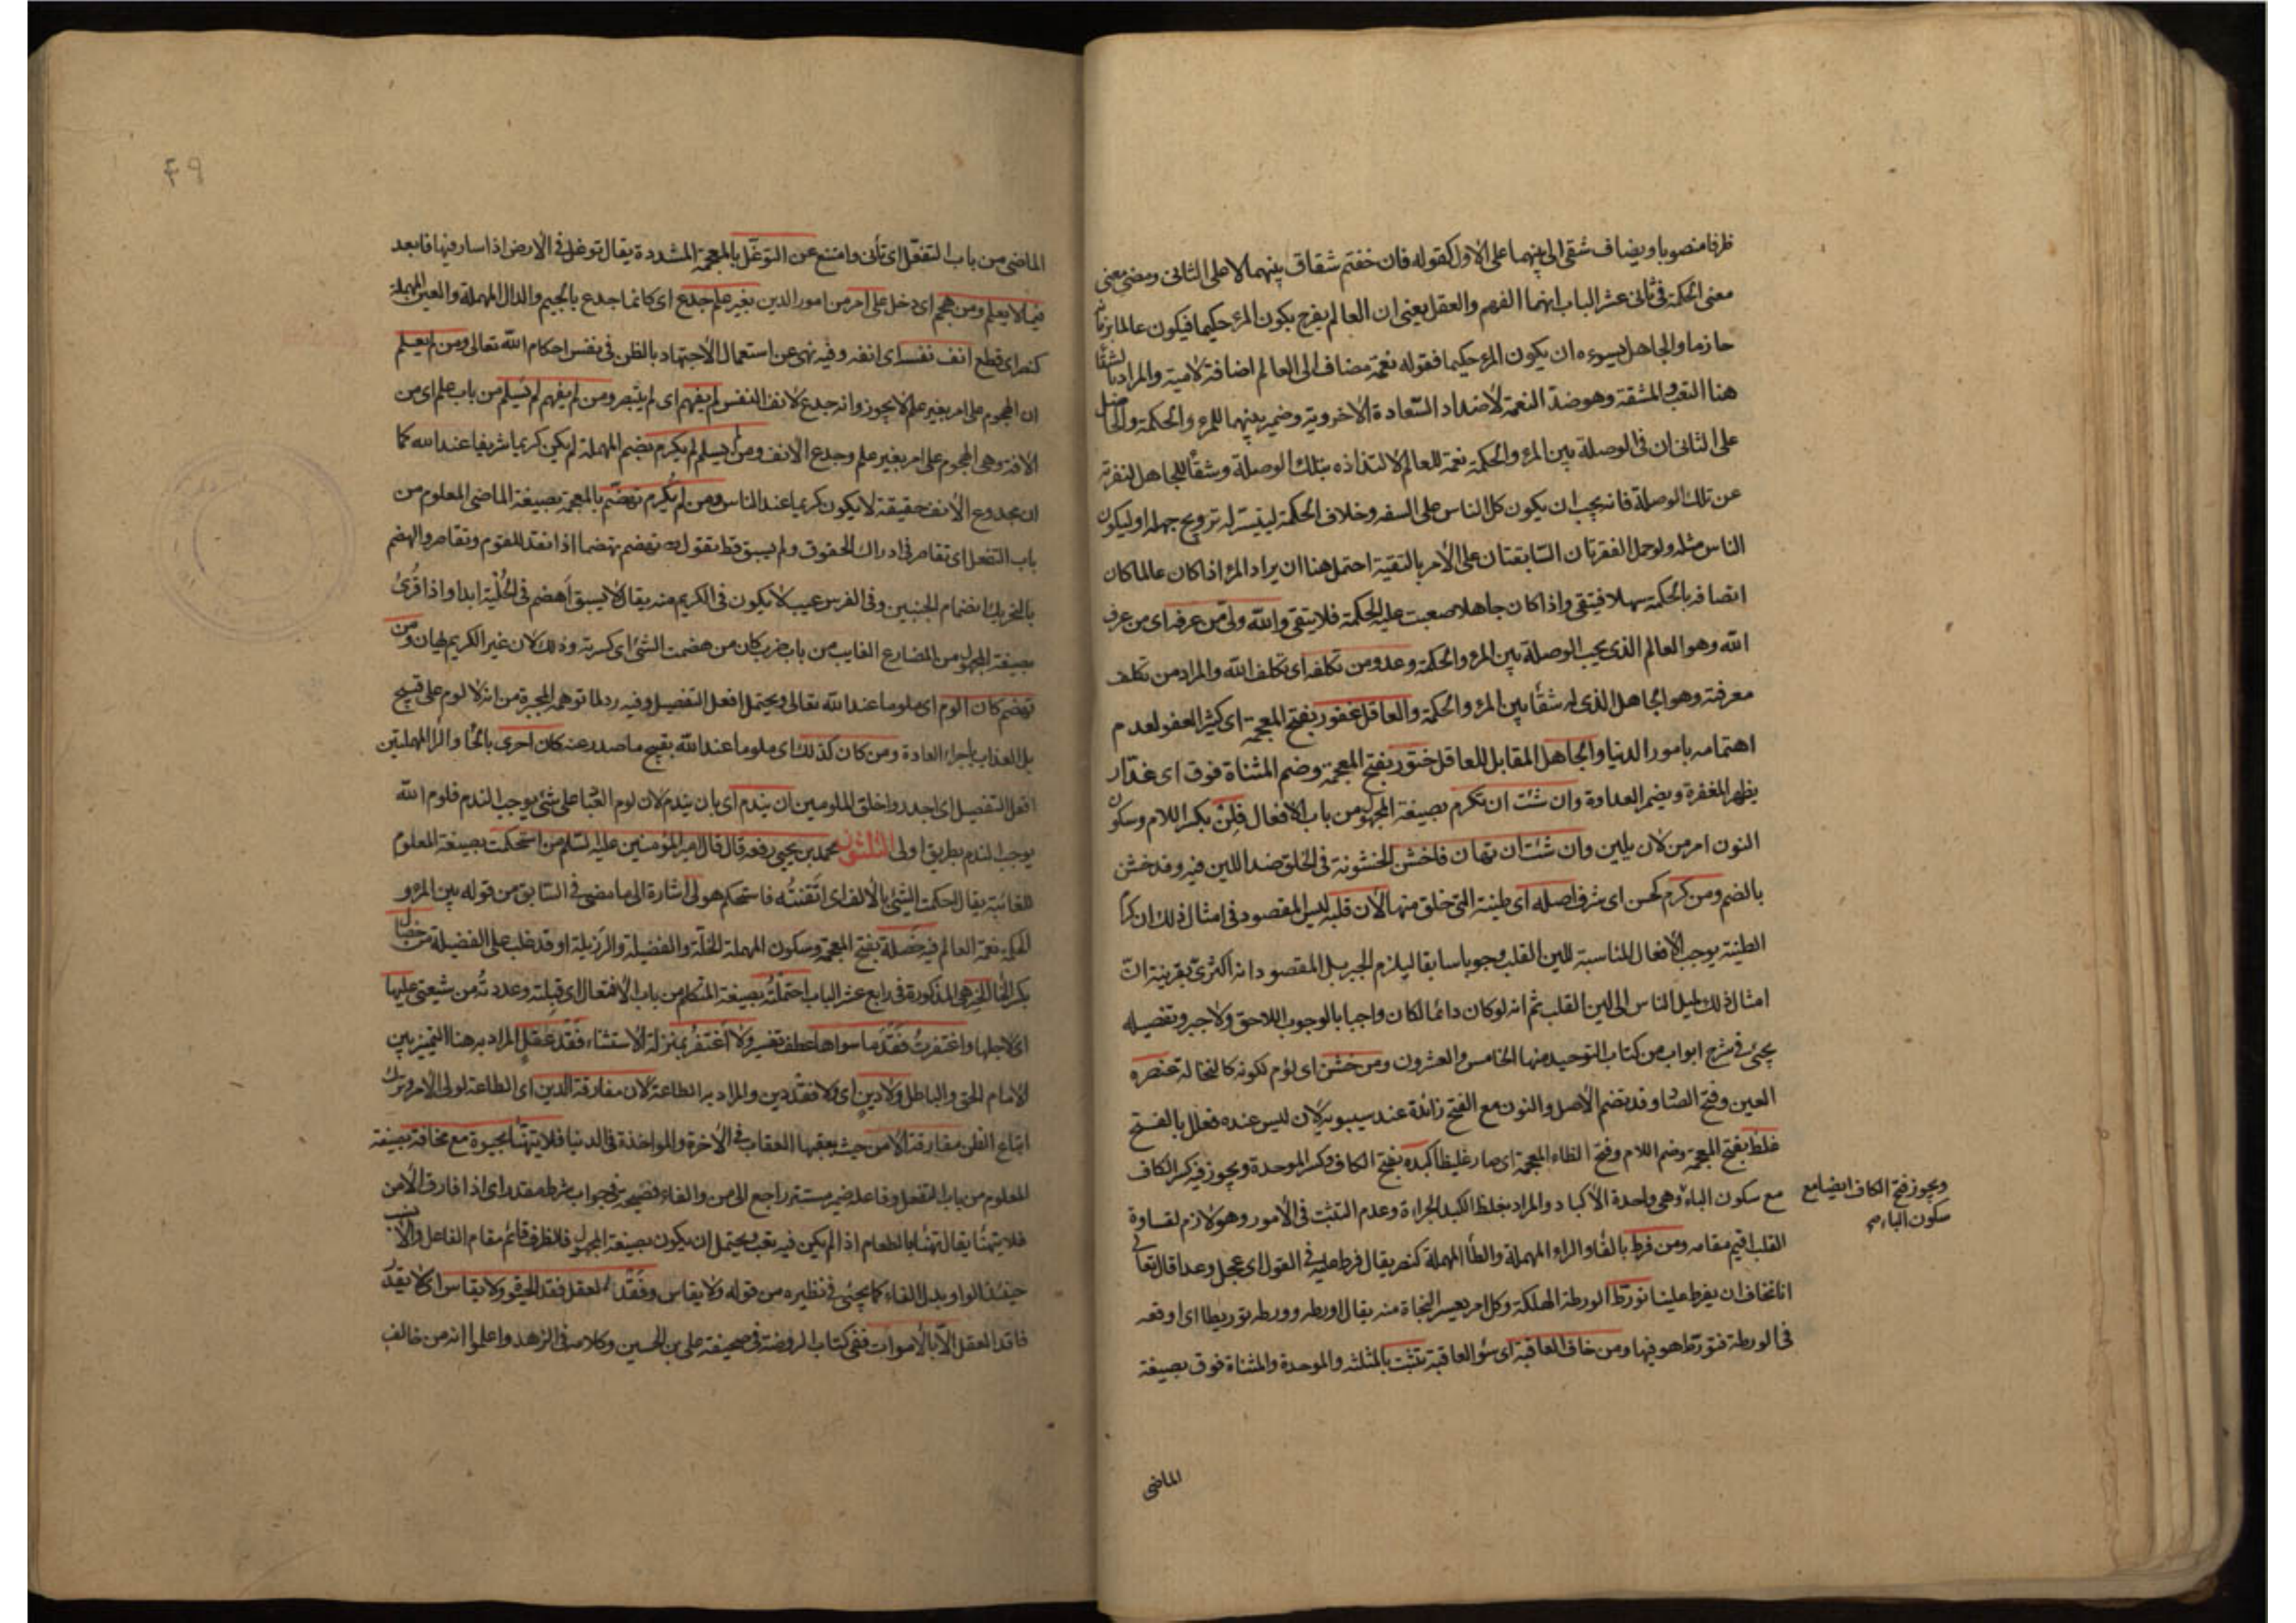 ظرفا منصوبا ويضاف شقى الى بينهما على الاول كقوله فان خفتم شقاق بينهما لا على الثانى ومضى معنى
معنى الحكمة فى ثانى عشر الباب انهما الفهم والعقل يعنى ان العالم يفرح بكون المرء حكيما فيكون عالما بزمانه
حازما والجاهل يسوءه ان يكون المرء حكيما فقوله نعمة مضاف الى العالم اضافة لامية والمراد بالشقاء
هنا التعب والمشقة وهو ضد النعمة لا ضد السعادة الاخروية وضمير بينهما للمرء والحكمة والحاصل
على الثانى ان فى الوصلة بين المرء والحكمة نعمة للعالم لالتذاذه بتلك الوصلة وشقاء للجاهل لنفرته
عن تلك الوصلة فانه يحب ان يكون كل الناس على السفه وخلاف الحكمة ليتيسر له ترويج جهله او ليكون
الناس مثله ولو حمل الفقرتان السابقتان على الأمر بالتقية احتمل هنا ان يراد المرء اذا كان عالما كان
اتصافه بالحكمة سهلا فيتقى واذا كان جاهلا صعبت عليه الحكمة فلا يتقى والله ولى من عرفه اى من عرف
الله وهو العالم الذى يحب الوصلة بين المرء والحكمة وعدو من تكلفه اى تكلف الله والمراد من تكلف
معرفته وهو الجاهل الذى له شقاء بين المرء والحكمة والعاقل غفور بفتح المعجمة اى كثير العفو لعدم
اهتمامه بامور الدنيا والجاهل المقابل للعاقل ختور بفتح المعجمة وضم المثناة فوق اى غدار
يظهر المغفرة ويضمر العداوة وان شئت ان تكرم بصيغة المجهول من باب الافعال فلن بكسر اللام وسكون
النون امر من لان يلين وان شئت ان تهان فاخشن الخشونة فى الخلق ضد اللين فيه وقد خشن
بالضم ومن كرم كحسن اى شرف اصله اى طينته التى خلق منها لان قلبه ليس المقصود فى امثال ذلك ان كرم
الطينة يوجب الافعال المناسبة للين القلب وجوبا سابقا ليلزم الجبر بل المقصود انه اكثرى بقرينة ان
امثال ذلك لميل الناس الى لين القلب ثم انه لو كان دائما لكان واجبا بالوجوب اللاحق ولا جبر وتفصيله
يجيئ فى شرح ابواب من كتاب التوحيد منها الخامس والعشرون ومن خشن اى لؤم لكونه كالنخالة عنصره
العين وفتح الصاد وقد تضم الاصل والنون مع الفتح زائدة عند سيبويه لان ليس عنده فعلل بالفتح
غلظ بفتح المعجمة وضم اللام وفتح الظاء المعجمة اى صار غليظا كبده بفتح الكاف وكسر الموحدة ويجوز فيه كسر الكاف
مع سكون الباء وهى واحدة الأكباد والمراد بغلظ الكبد الجراءة وعدم التثبت فى الأمور وهو لازم لقساوة
ويجوز فتح الكاف ايضا مع
سكون الباء صح
القلب اقيم مقامه ومن فرط بالفاء والراء المهملة والطاء المهملة كنصر يقال فرط عليه فى القول اى عجل وعدا قال تعالى
اننا نخاف ان يفرط علينا تورط الورطة الهلكة وكل امر يعسر النجاة منه يقال اورطه وورطه توريطا اى اوقعه
فى الورطة فتورط هو فيها ومن خاف العاقبة اى سؤ العاقبة تثبت بالمثلثة والموحدة والمثناة فوق بصيغة
الماضى
٤٩
الماضى من باب التفعّل اى تأنى وامتنع عن التوغّل بالمعجمة المشددة يقال توغل فى الارض اذا سار فيها فابعد
فيما لا يعلم ومن هجم اى دخل على امر من امور الدين بغير علم جدع اى كانما جدع بالجيم والدال المهملة والعين المهملة
كنصر اى قطع انف نفسه اى انفه وفيه نهى عن استعمال الاجتهاد بالظن فى نفس احكام الله تعالى ومن لم يعلم
ان الهجوم على امر بغير علم لا يجوز وانه جدع لانف النفس لم يفهم اى لم يتبصر ومن لم يفهم لم يسلم من باب علم اى من
الافة وهى الهجوم على امر بغير علم وجدع الانف ومن لم يسلم لم يكرم بضم المهملة لم يكن كريما شريفا عند الله كما
ان مجدوع الأنف حقيقة لا يكون كريما عند الناس ومن لم يكرم تهضّم بالمعجمة بصيغة الماضى المعلوم من
باب التفعل اى تقاصر فى ادراك الحقوق ولم يسبق قط تقول تهضم تهضما اذا انقد للقوم وتقاصر والهضم
بالتحريك انضمام الجنبين وفى الفرس عيب لا يكون فى الكريم منه يقال لا يسبق أهضم فى الحلبة ابدا واذا قرئ
بصيغة المجهول من المضارع الغايب من باب ضرب كان من هضمت الشئ اى كسرته وذلك لان غير الكريم مهان ومن
تهضم كان الوم اى ملوما عند الله تعالى ويحتمل افعل التفضيل وفيه رد لما توهمه المجبرة من انه لا لوم على قبيح
بل العذاب باجراء العادة ومن كان كذلك اى ملوما عند الله بقبيح ما صدر عنه كان احرى بالحا والرا المهملتين
افعل التفضيل اى اجدر واخلق الملومين ان يندم اى بان يندم لان لوم العباد على شئ يوجب الندم فلوم الله
يوجب الندم بطريق اولى الثلثون محمد بن يحيى رفعه قال قال امير المؤمنين عليه السلم من استحكمت بصيغة المعلوم
للغائبة يقال احكمت الشئ بالالف اى اتقنته فاستحكم هو لى اشارة الى ما مضى فى السابق من قوله بين المرء و
الحكمة نعمة العالم فيه خصلة بفتح المعجمة وسكون المهملة الخلّة والفضيلة والرذيلة او قد غلب على الفضيلة من خصال
بكسر الخا الخير هى المذكورة فى رابع عشر الباب احتملته بصيغة المتكلم من باب الافتعال اى قبلته وعددته من شيعتى عليها
اى لاجلها واغتفرت فقد ما سواها عطف تفسير ولا اغتفر بمنزلة الاستثناء فقد عقل المراد به هنا التميز بين
الامام الحق والباطل ولا دين اى ولا فقد دين والمراد به الطاعة لان مفارقة الدين اى الطاعة لولى الامر وترك
اتباع الظن مفارقة الامن حيث يعقبها العقاب فى الآخرة والمواخذة فى الدنيا فلا يتهنّا بحيوة مع مخافة بصيغة
المعلوم من باب التفعل وفاعله ضمير مستتر راجع الى من والفاء فصيحة فى جواب شرط مقدر اى اذا فارق الأمن
فلا يتهنّا يقال تهنّا بالطعام اذا لم يكن فيه تعب ويحتمل ان يكون بصيغة المجهول فالظرف قائم مقام الفاعل والأنسب
حينئذ الواو بدل الفاء كما يجيئ فى نظيره من قوله ولا يقاس وفقد العقل فقد الحيوة ولا يقاس اى لا يقدر
فاقد العقل الّا بالاموات ففى كتاب الروضة فى صحيفة على بن الحسين وكلامه فى الزهد واعلموا انه من خالف